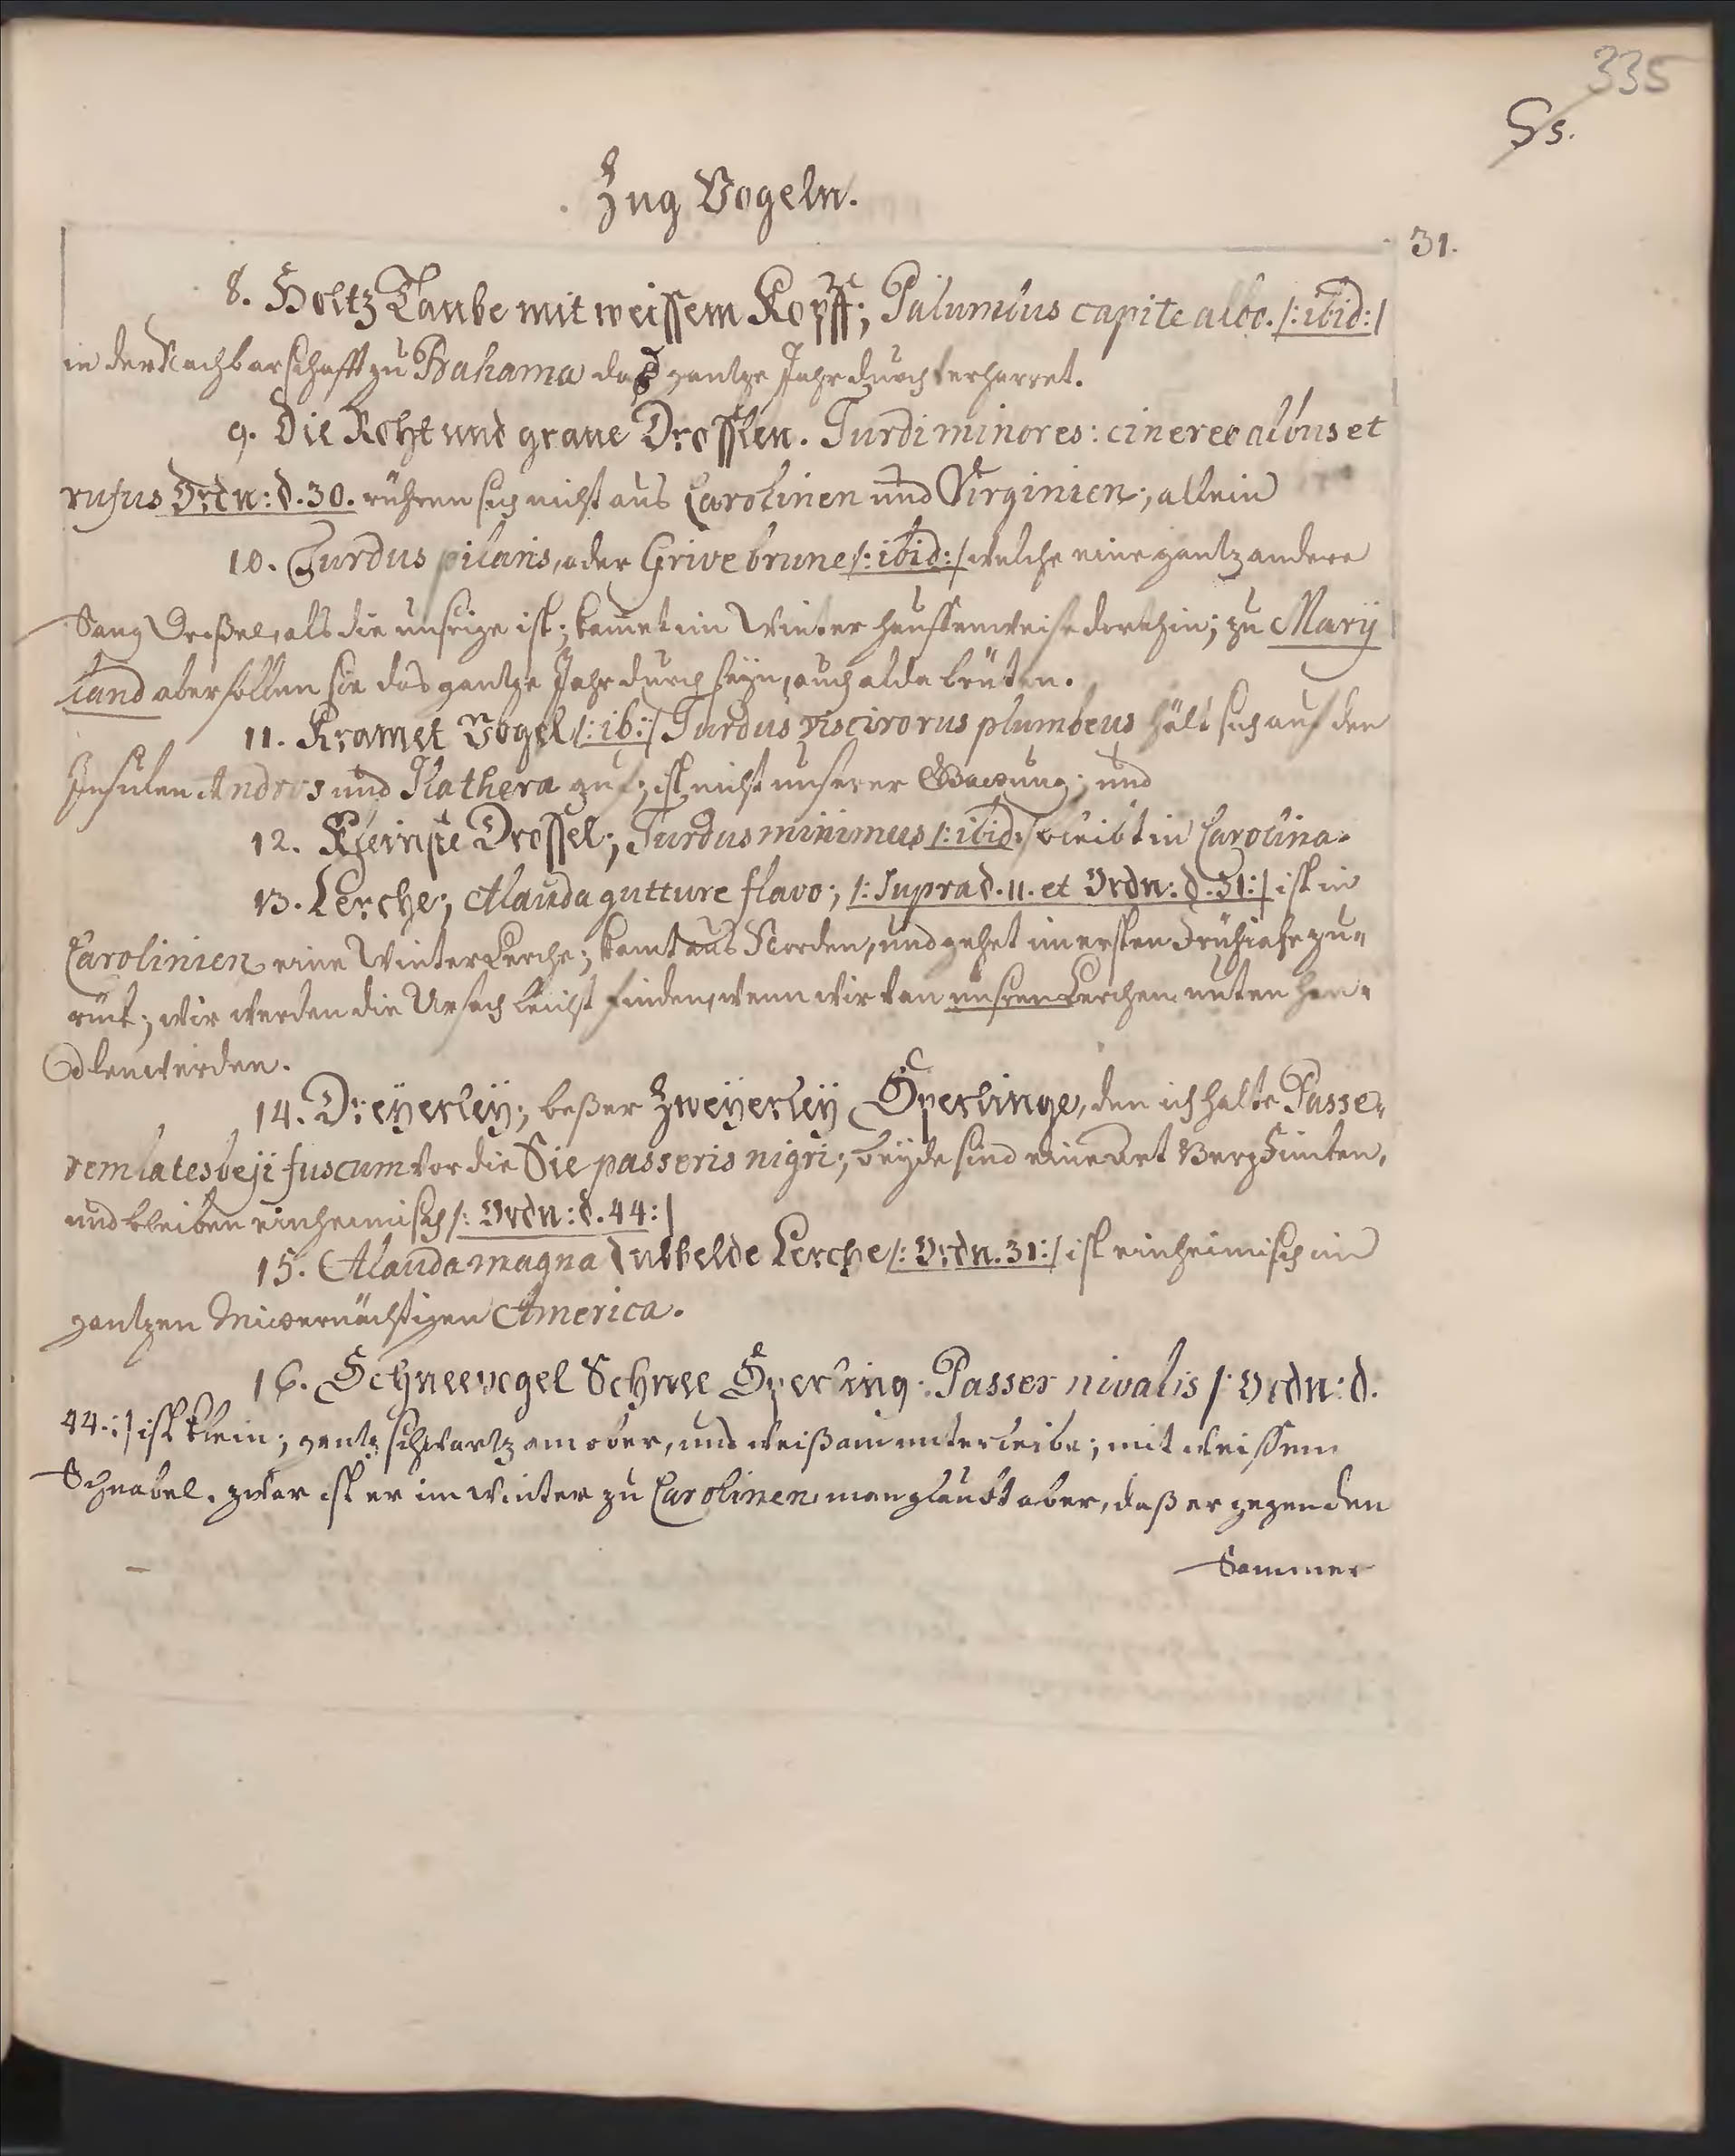 335
Ss.
Zug Vogeln.
31.
8. Holtz Taube mit weissem Kopff; Palumbus capite albo. /: ibid: /
in der Nachbarschafft zu Bahama das gantze Jahr durch verharret.
9. Die Roht und graue Drosslen. Turdi minores: cinereo albus et
rufus Ordn: d. 30. rühren sich nicht aus Carolinen und Virginien; allein
10. Turdus pilaris, oder Grive brune /: ibid: / welche eine gantz andere
Sang Droßel, als die unsrige ist; kom̅et im Winter hauffenweise dorthin; zu Marÿ
land aber sollen sie das gantze Jahr durch seÿn, auch alda brüten.
11. Kramet Vogel /: ib: / Turdus viscivorus plumbeus hält sich auf den
Insulen Andros und Ilathera auf; ist nicht unserer Gattung; und
12. Kleinste Drossel; Turdus minimus /: ibid: / bleibt in Carolina.
13. Lerche; Alauda gutture flavo; /: Supra d. 11. et Ordn: d. 31: / ist in
Carolinien eine Winter Lerche; komt aus Norden, und gehet im ersten Frühjahr zu-
rück; wir werden die Ursach leicht finden, wenn wir von unsren Lerchen unten han-
dlen werden.
14. Dreÿerleÿ; beßer Zweÿerleÿ Sperlinge, den ich halte Passe-
rem latesbeji fuscum vor die Sie passeris nigri; beÿde sind eine Art Berg Finken,
und bleiben einheimisch /: Ordn: d. 44: /
15. Alauda magna dubbelde Lerche /: Ordn. 31: / ist einheimisch im
gantzen Mitternächtigen America.
16. Schneevogel Schnee Sperling. Passer nivalis /: Ordn: d.
44.: / ist klein; gantz schwartz am ober, und weiß am unterleibe; mit weissem
Schnabel. zwar ist er im Winter zu Carolinen, man glaubt aber, daß er gegen den
Sommer